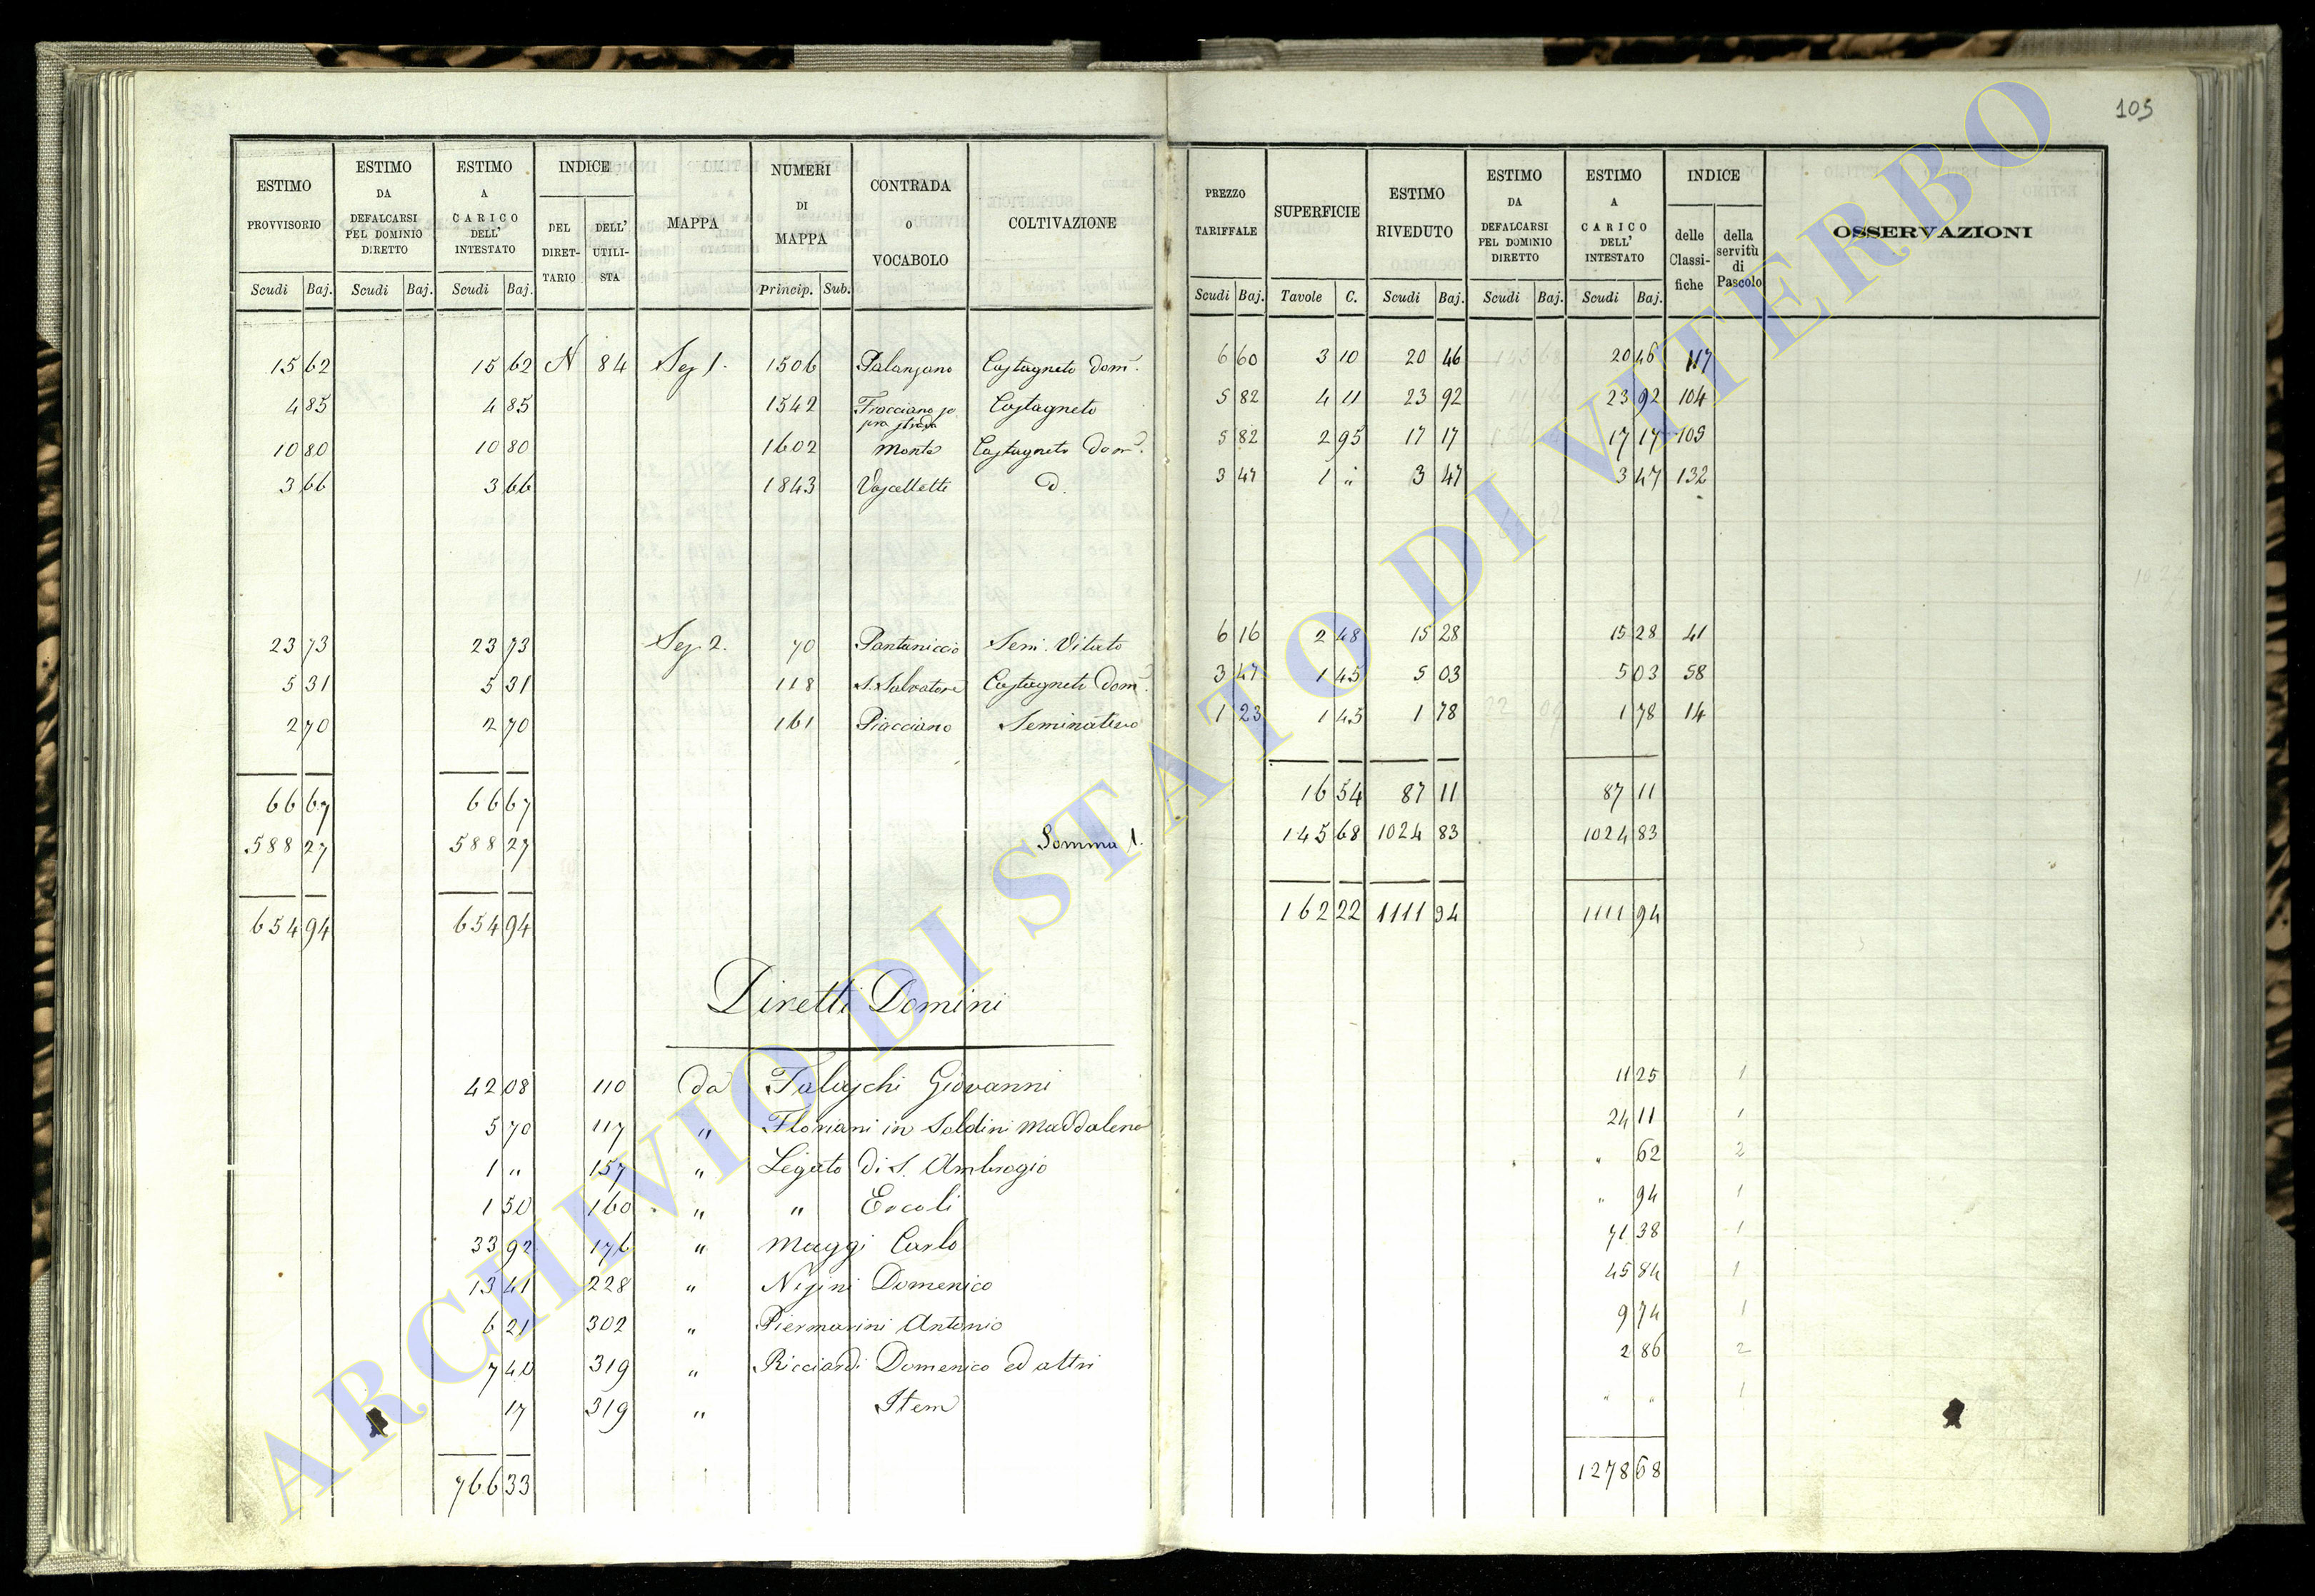 105
ESTIMO PROVVISORIO
ESTIMO DA DEFALCARSI PEL DOMINIO DIRETTO
ESTIMO A CARICO DELL' INTESTATO
INDICE
DEL DIRET-TARIO
DELL' UTILI-STA
MAPPA
NUMERI DI MAPPA
CONTRADA O VOCABOLO
COLTIVAZIONE
PREZZO TARIFFALE
SUPERFICIE
ESTIMO RIVEDUTO
ESTIMO DA DEFALCARSI PEL DOMINIO DIRETTO
ESTIMO A CARICO DELL' INTESTATO
INDICE
delle Classi-fiche
della servitù di Pascolo
OSSERVAZIONI
Scudi Baj. Scudi Baj. Scudi Baj. Princip. Sub. Scudi Baj. Tavole C. Scudi Baj. Scudi Baj. Scudi Baj.
15 62 15 62 N 84 Sez 1. 1506 Palanzano Castagneto dom. 6 60 3 10 20 46 20 46 117
4 85 4 85 1542 pra strada Castagneto 5 82 4 11 23 92 23 92 104
10 80 10 80 1602 Monte Castagneto dom. 5 82 2 95 17 17 17 17 105
3 66 3 66 1843 Vascellette d. 3 47 1 " 3 47 3 47 132
23 73 23 73 Sez 2. 70 Pantaniccio Sem. Vitato 6 16 2 48 15 28 15 28 41
5 31 5 31 118 S. Salvatore Castagneto dom. 3 47 1 45 5 03 5 03 58
2 70 2 70 161 Piacciano Seminativo 1 23 1 45 1 78 1 78 14
66 67 66 67 16 54 87 11 87 11
588 27 588 27 Somma 1. 145 68 1024 83 1024 83
654 94 654 94 162 22 1111 94 1111 94
Diretti Domini
42 08 110 da Falaschi Giovanni 11 25 1
5 70 117 " Floriani in Soldini Maddalena 24 11 1
1 " 157 " Legato di S. Ambrogio " 62 2
1 50 160 " " Ercoli " 94 1
33 92 176 " Maggi Carlo 71 38 1
13 41 228 " Nisini Domenico 45 84 1
6 21 302 " Piermarini Antonio 9 74 1
7 40 319 " Ricciardi Domenico ed altri 2 86 2
17 319 " Item " " 1
766 33 1278 68
ARCHIVIO DI STATO DI VITERBO